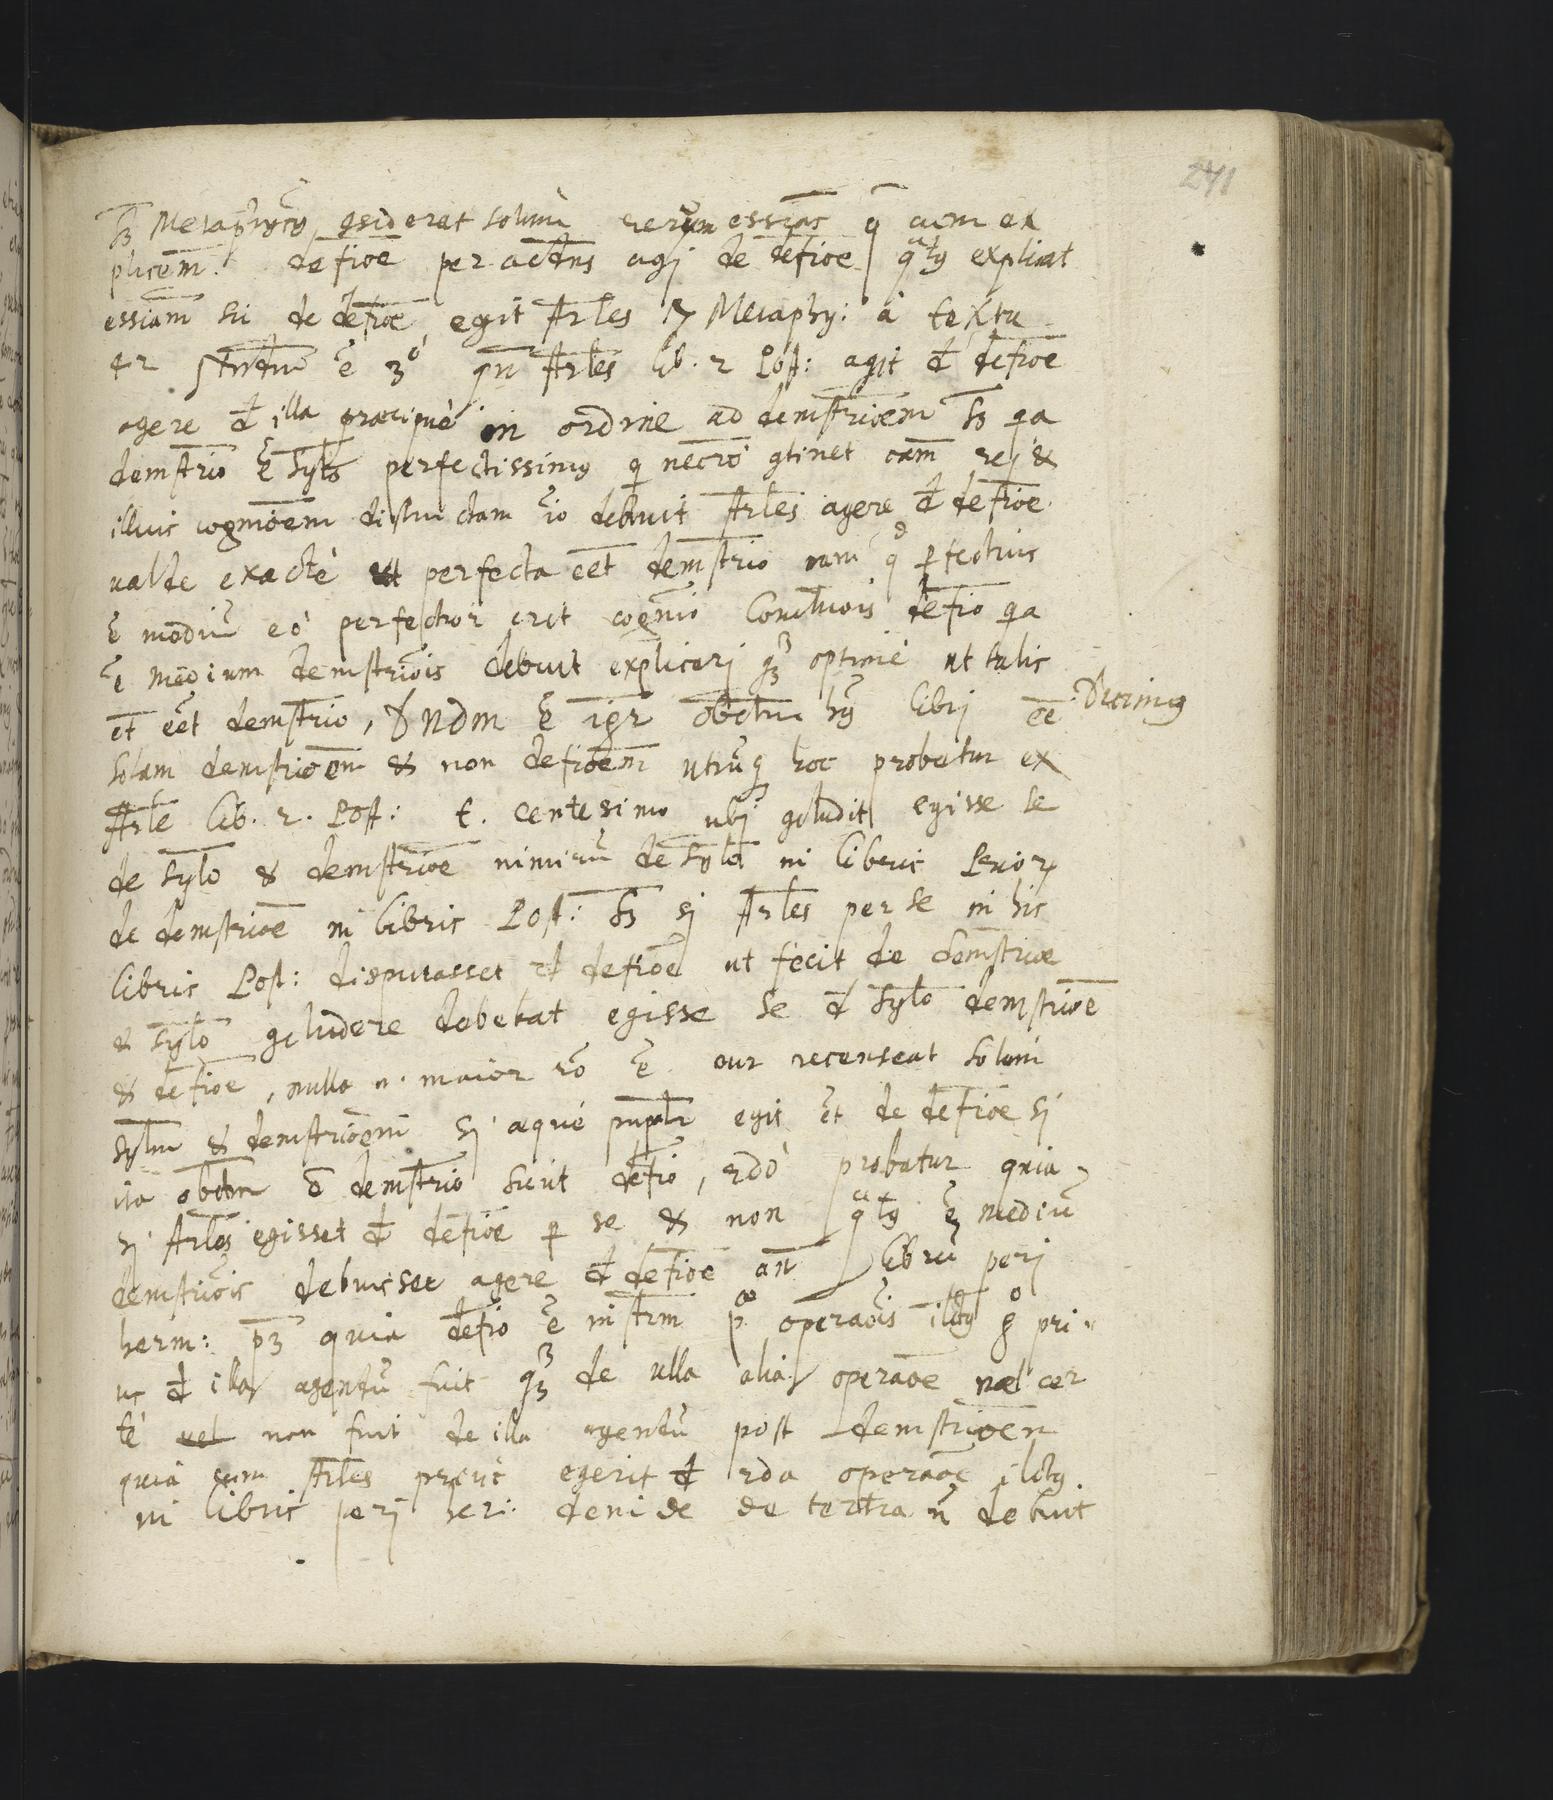 271
sꝫ Metaphycꝰ ꝯsiderat solum rerum essias q cum ex
plicem. defioe per accdns agj de defioe qatꝰ explicat
essiam sii de defioe egit Arles 7 Metaphy: a textu
42 Ntndum e 3º qn Arles lib. 2 Post: agit đ defioe
agere đ illa præcipuè in ordine ad demstrioem sꝫ qa
demstrio e syls perfectissimꝰ q necrio ꝯtinet cam rej &
illius cognioem distinctam io debuit Arles agere đ defioe
ualde exactè ut perfecta eet demstrio nam qo ꝑfectius
e mediu eò perfectior erit cognio Conclusiois defio qa
e medium demstriois debuit explicarj qꝫ optimè ut talis
et eet demstrio, dndm e igr obctm hꝰ librj ee Dicimꝰ
solam demstrioem & non defioem utruqꝫ hoc probatur ex
Arle lib. 2. Post: t. centesimo ubj ꝯcludit egisse se
de sylo & demstrioe nimiru de sylo in libris Priorꝫ
de demstrioe in libris Post: sꝫ sj Arles per se in his
libris Post: disputasset đ defioe ut fecit de demstrioe
& sylo ꝯcludere debebat egisse se đ sylo demstrioe
& defioe, nulla n. maior ro e cur recenseat solum
sylm & demstrioem sj æquè prinplr egit et de defioe sj
ita obctm e demstrio sicut defio, 2do probatur quia
sj Arles egisset đ defioe ꝑ se & non qatꝰ e mediu
demstriois debuisset agere đ defioe an libru perj
herm: pꝫ quia defio e instrm pæ operaois illctꝰ go pri
us đ illa agendu fuit qꝫ de ulla alia operaoe uel cer
tè uel non fuit de illa agendu post demstrioem
quia cum Arles prius egerit đ 2da operaoe illctꝰ
in libris perj her: deinde de tertia n debuit